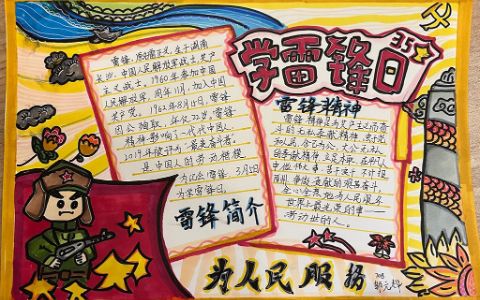 学雷锋日
3.5
雷锋,原名雷正兴,生于湖南
长沙,中国人民解放军战士,共产
主义战士,1960年参加中国
人民解放军,同年11月,加入中国
共产党。1962年8月15日,雷锋
因公殉职,年仅22岁,雷锋
精神影响了一代代中国人。
2019年被评为"最美奋斗者",
是中国人的劳动楷模
为纪念雷锋,3月5日
为学雷锋日。
雷锋简介
雷锋精神
雷锋精神是为共产主义而奋
斗的无私奉献精神,忠于党
和人民、舍己为公、大公无私
的奉献精神
世界上最光荣的事——
劳动
为人民服务